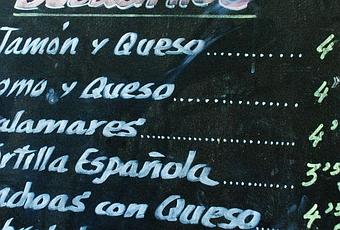 Jamón y Queso.................. 4
omo y Queso.................. 4"
alamares...................... 4'5
rtilla Española............ 3'5
nchoas con Queso.... 4'5